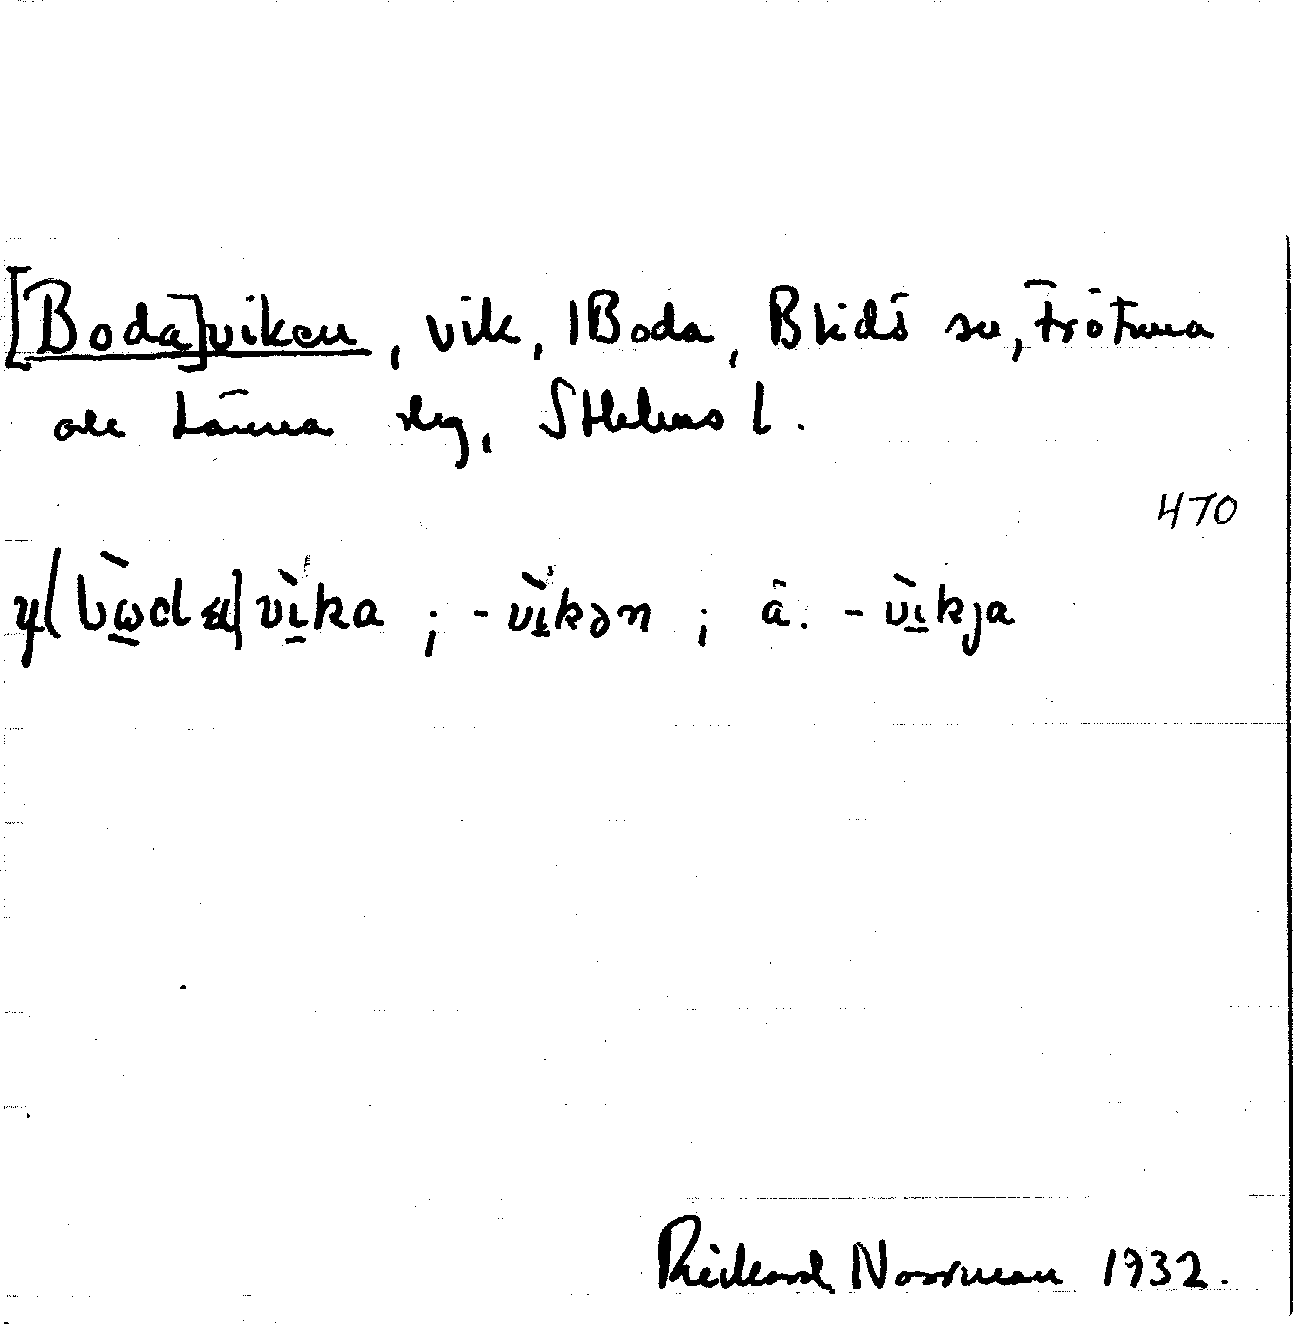 [Boda]viken, vik, 1 Boda, Blidö sn, Frötuna
och Länna slg, Sthlms l.
470
y( bὼda) vìka ; - vìkən ; ä. - vìkja
Rickard Norrman 1932.